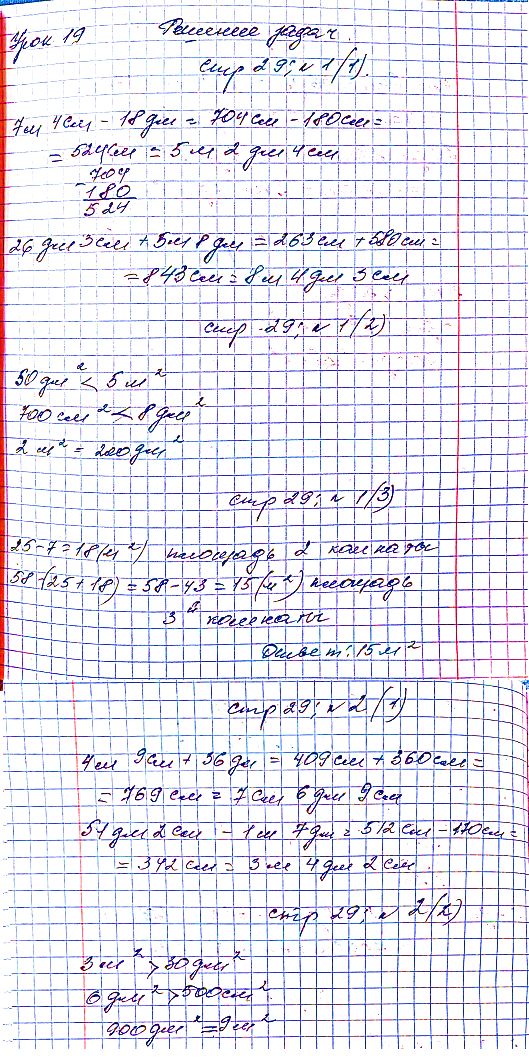 Урок 19 Решение задач.
стр 29; n 1(1).
7м 4см - 18дм = 704см - 180см =
= 524см = 5м 2дм 4см
- 704
180
524
26дм 3см + 5м 8дм = 263см + 580см =
= 843см = 8м 4дм 3см
стр 29; n 1(2)
50дм² < 5м²
700см² < 8дм²
2м² = 200дм²
стр 29; n 1(3)
25-7=18(м²) площадь 2 комнаты
58-(25+18)=58-43=15(м²) площадь
3й комнаты
Ответ: 15м²
стр 29; n 2(1)
4м 9см + 36дм = 409см + 360см =
= 769см = 7см 6дм 9см
51дм 2см - 1м 7дм = 512см - 170см =
= 342см = 3м 4дм 2см
стр 29; n 2(2)
3м² > 30дм²
6дм² > 500см²
900дм² = 9м²